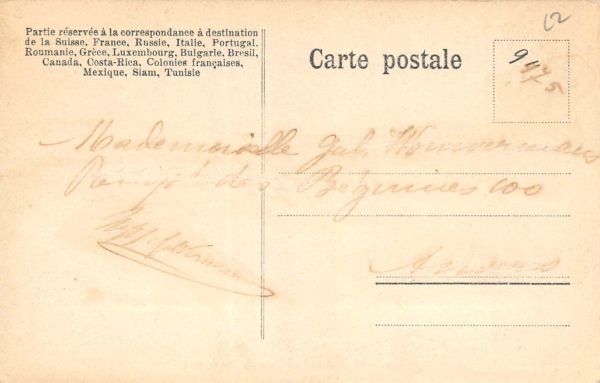 Partie réservée à la correspondance à destination
de la Suisse, France, Russie, Italie, Portugal,
Roumanie, Grèce, Luxembourg, Bulgarie, Brésil,
Canada, Costa-Rica, Colonies françaises,
Mexique, Siam, Tunisie
Carte postale
Mademoiselle Gab. Wouvermans
des Béguines
Anvers